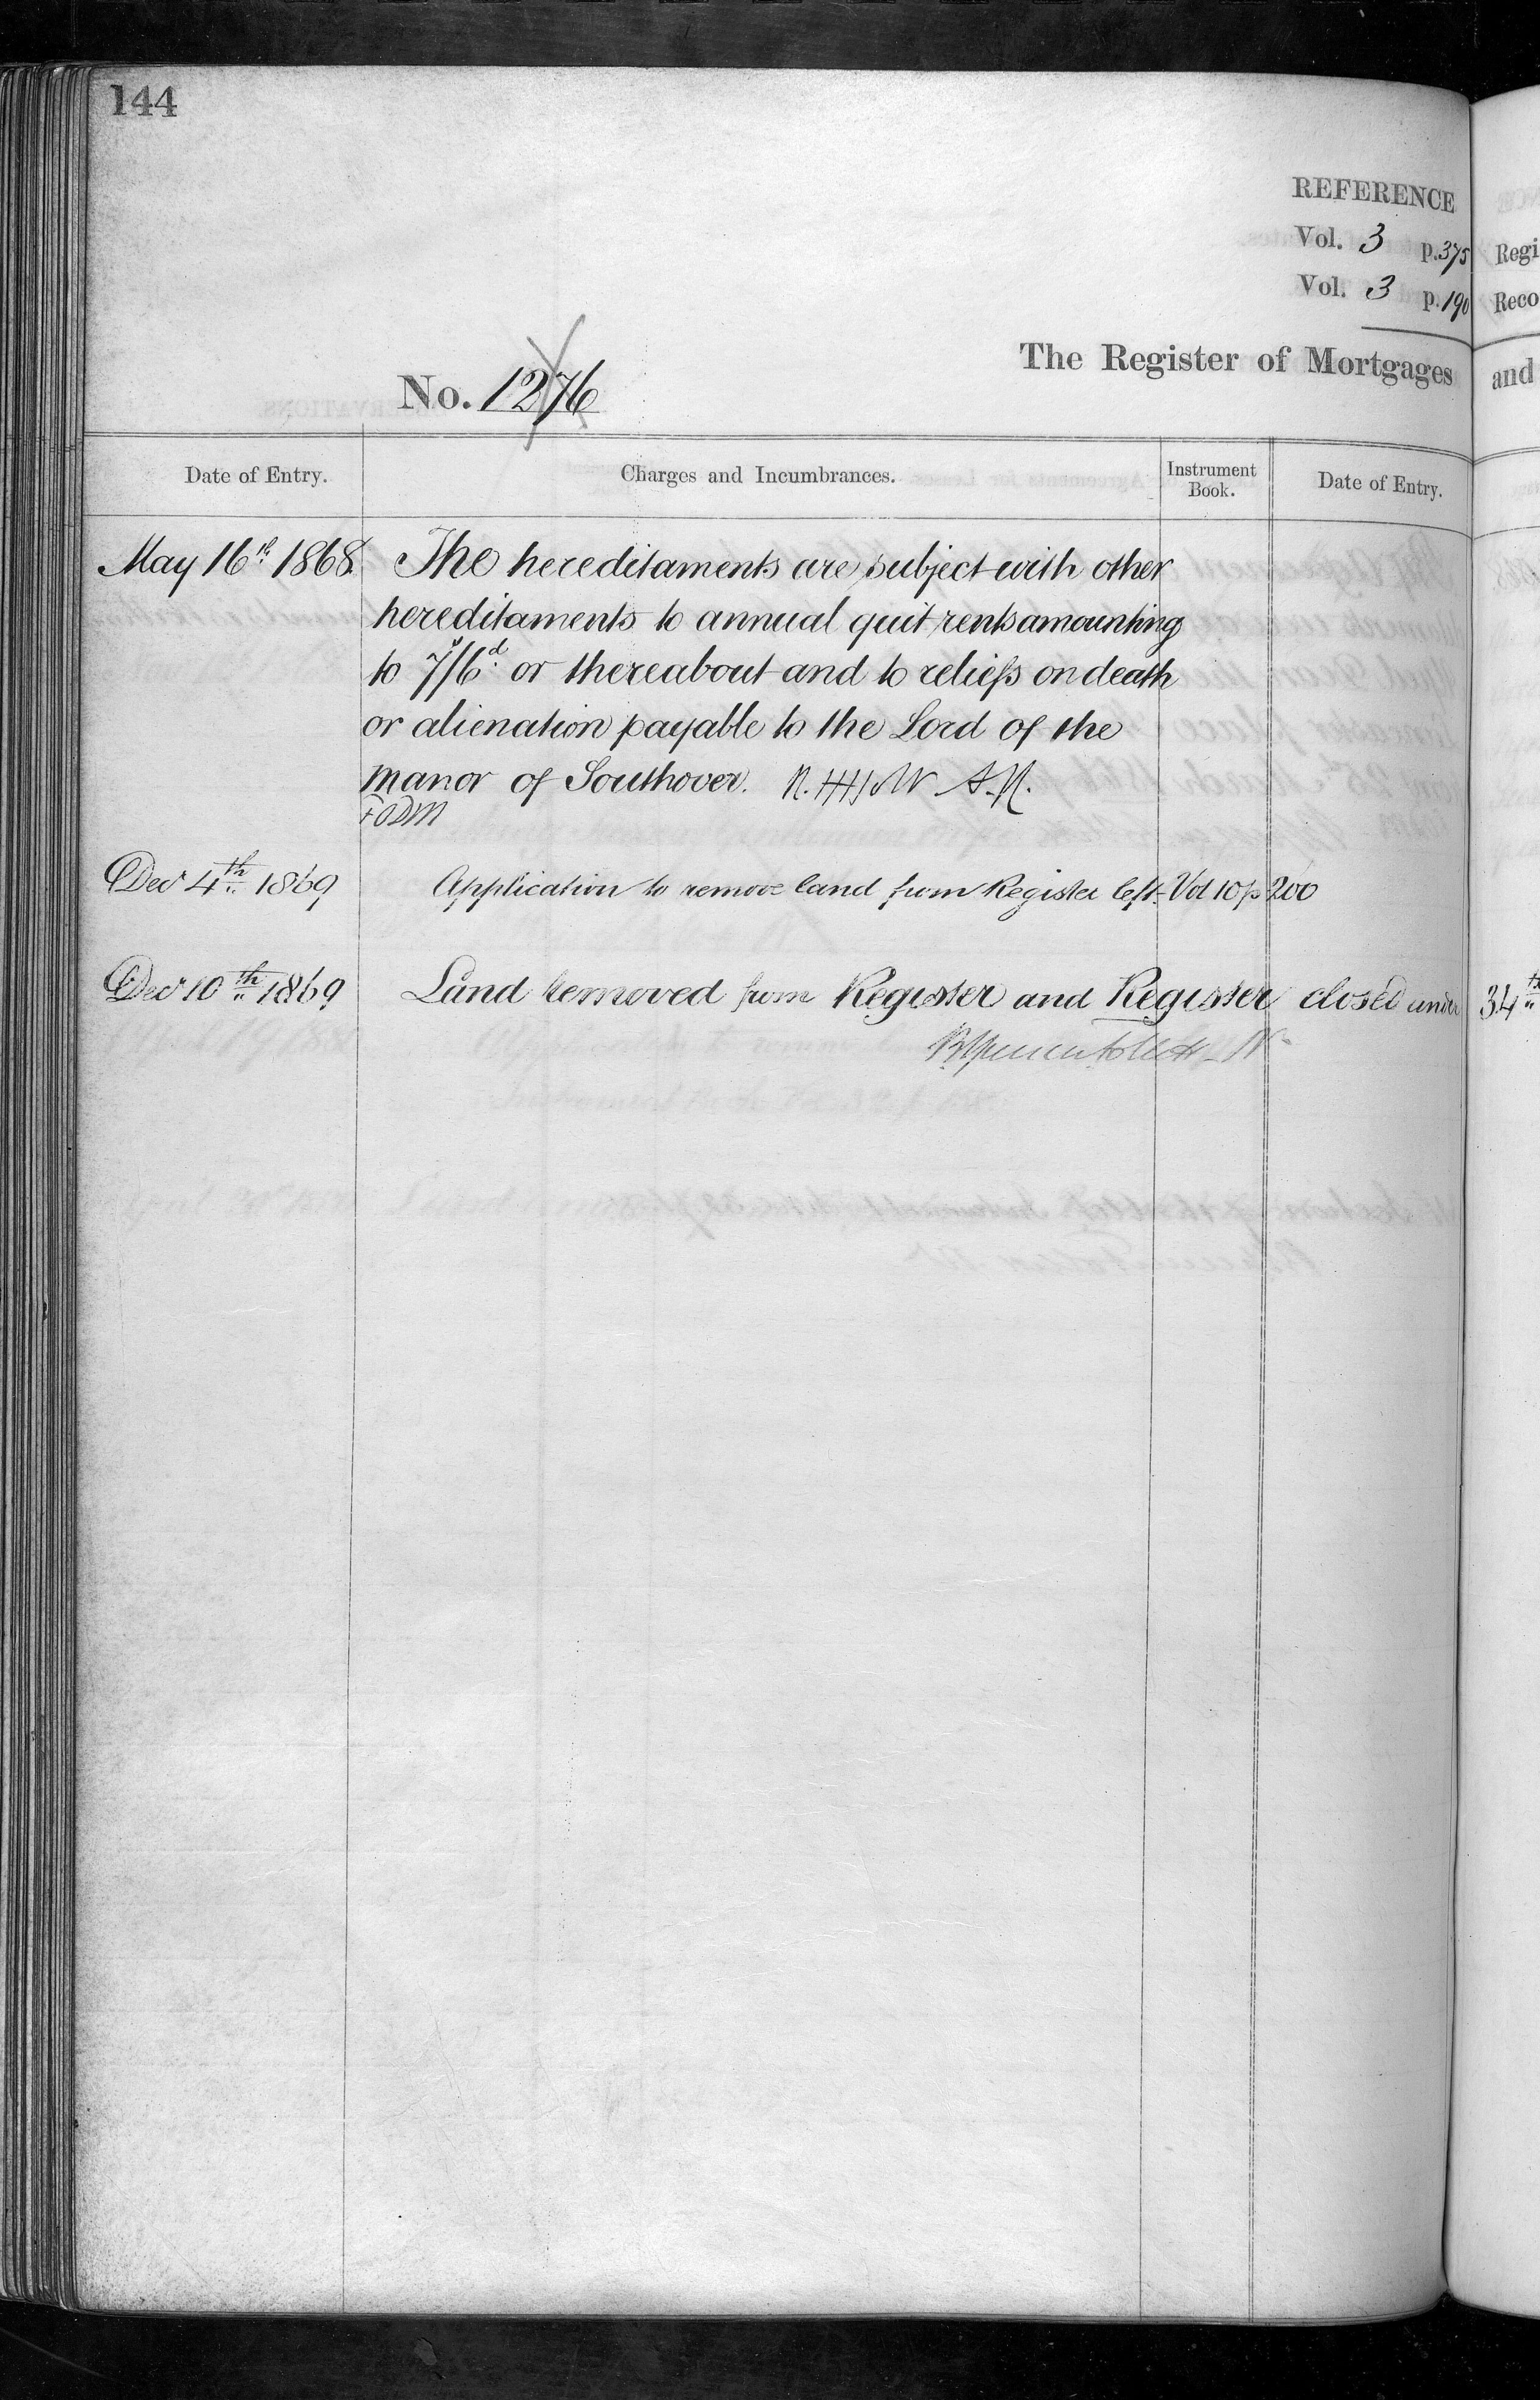 144
REFERENCE
Vol. 3 p. 375
Vol. 3 p. 190
Regi
Reco
The Register of Mortgages
and
No. 1276
Date of Entry.
Charges and Incumbrances.
Instrument Book.
Date of Entry.
May 16th 1868. The hereditaments are subject with other
hereditaments to annual quit rents amounting
to 7s/6d. or thereabout and to reliefs on death
or alienation payable to the Lord of the
Manor of Southover.
Decr 4th 1869 Application to remove land from Register left Vol 10 p 200
Decr 10th 1869 Land removed from Register and Register closed under 34th